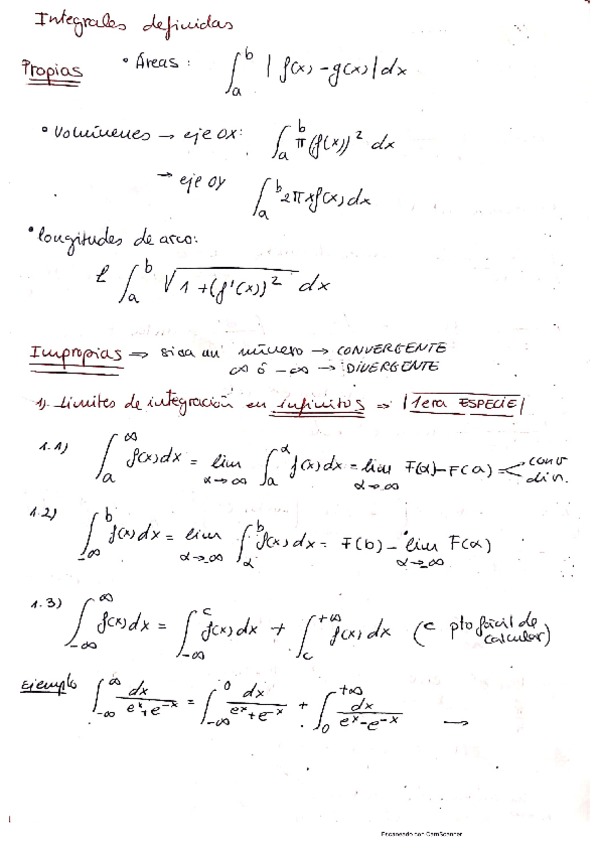 Integrales definidas
Propias • Áreas: ∫_a^b | f(x) - g(x) | dx
• Volúmenes → eje OX: ∫_a^b π (f(x))² dx
→ eje OY ∫_a^b 2πx f(x) dx
• longitudes de arco:
ℓ ∫_a^b √(1 + (f'(x))²) dx
Impropias ⇒ si da un número → CONVERGENTE
∞ ó -∞ → DIVERGENTE
1). Límites de integración en infinitos ⇒ |1era ESPECIE|
1.1) ∫_a^∞ f(x) dx = lim_{α→∞} ∫_a^α f(x) dx = lim_{α→∞} F(α) - F(a) = < conv div.
1.2) ∫_{-∞}^b f(x) dx = lim_{α→-∞} ∫_α^b f(x) dx = F(b) - lim_{α→-∞} F(α)
1.3) ∫_{-∞}^∞ f(x) dx = ∫_{-∞}^c f(x) dx + ∫_c^{+∞} f(x) dx (c pto fácil de calcular)
Ejemplo ∫_{-∞}^∞ dx/(e^x + e^-x) = ∫_{-∞}^0 dx/(e^x + e^-x) + ∫_0^{+∞} dx/(e^x - e^-x) →
Escaneado con CamScanner